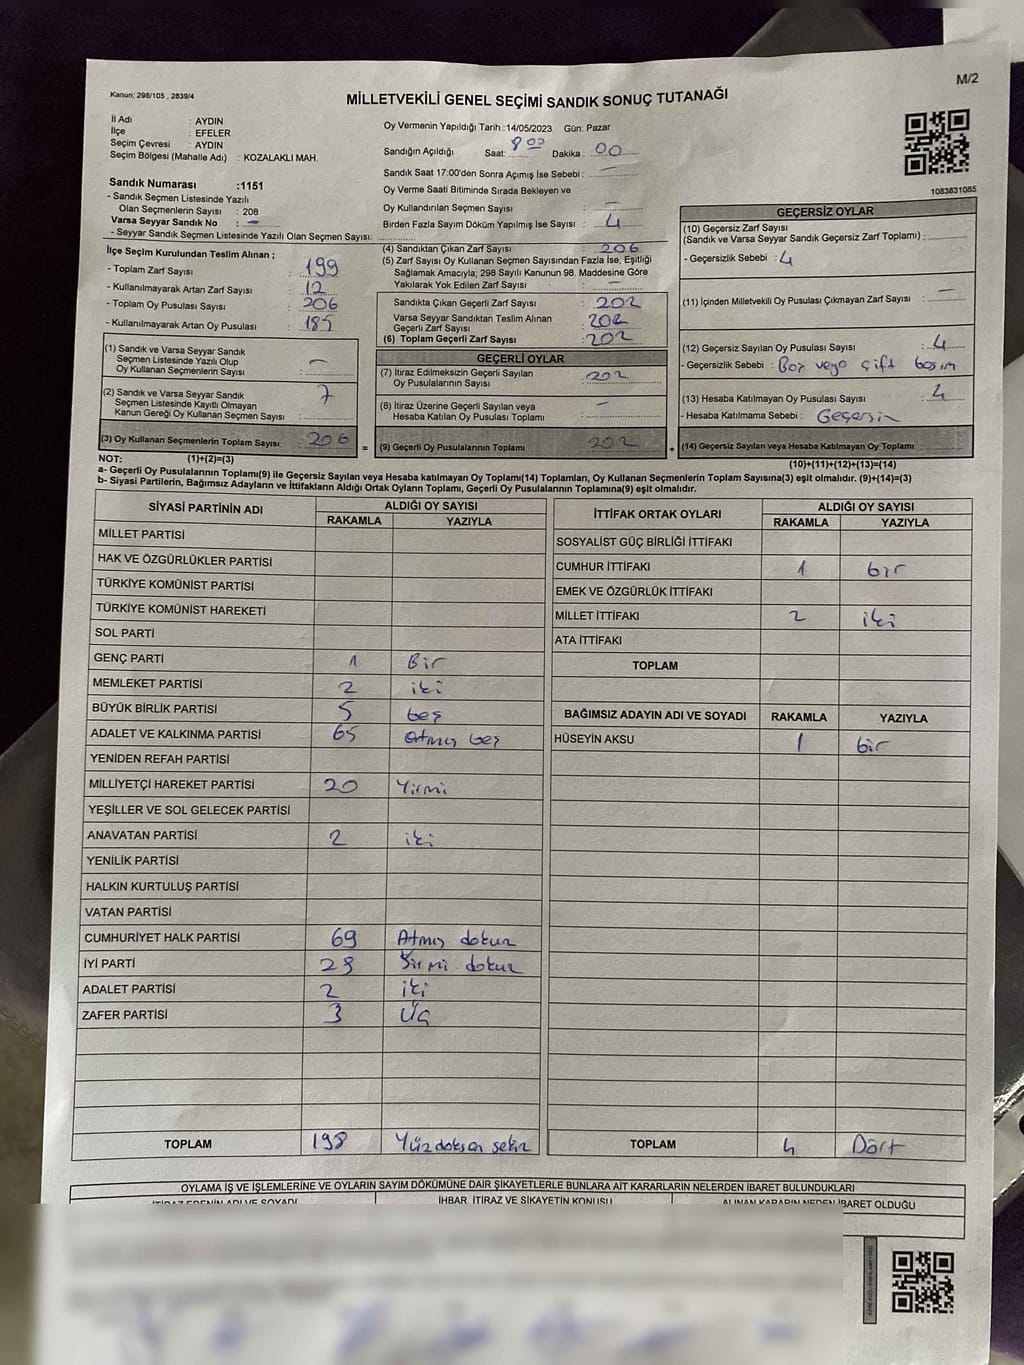 M/2
Kanun; 298/105 , 2839/4
MİLLETVEKİLİ GENEL SEÇİMİ SANDIK SONUÇ TUTANAĞI
İl Adı : AYDIN
İlçe : EFELER
Seçim Çevresi : AYDIN
Seçim Bölgesi (Mahalle Adı) : KOZALAKLI MAH.
Sandık Numarası :1151
- Sandık Seçmen Listesinde Yazılı
Olan Seçmenlerin Sayısı : 208
Varsa Seyyar Sandık No : -
- Seyyar Sandık Seçmen Listesinde Yazılı Olan Seçmen Sayısı:
Oy Vermenin Yapıldığı Tarih :14/05/2023 Gün: Pazar
Sandığın Açıldığı Saat: 8 00 Dakika : 00
Sandık Saat 17:00'den Sonra Açımış İse Sebebi : -
Oy Verme Saati Bitiminde Sırada Bekleyen ve
Oy Kullandırılan Seçmen Sayısı : -
Birden Fazla Sayım Döküm Yapılmış İse Sayısı : 4
1083831085
İlçe Seçim Kurulundan Teslim Alınan ;
- Toplam Zarf Sayısı : 199
- Kullanılmayarak Artan Zarf Sayısı : 12
- Toplam Oy Pusulası Sayısı : 206
- Kullanılmayarak Artan Oy Pusulası : 185
(1) Sandık ve Varsa Seyyar Sandık
Seçmen Listesinde Yazılı Olup
Oy Kullanan Seçmenlerin Sayısı : -
(2) Sandık ve Varsa Seyyar Sandık
Seçmen Listesinde Kayıtlı Olmayan
Kanun Gereği Oy Kullanan Seçmen Sayısı : 7
(3) Oy Kullanan Seçmenlerin Toplam Sayısı : 206
(4) Sandıktan Çıkan Zarf Sayısı : 206
(5) Zarf Sayısı Oy Kullanan Seçmen Sayısından Fazla İse, Eşitliği
Sağlamak Amacıyla; 298 Sayılı Kanunun 98. Maddesine Göre
Yakılarak Yok Edilen Zarf Sayısı : -
Sandıkta Çıkan Geçerli Zarf Sayısı : 202
Varsa Seyyar Sandıktan Teslim Alınan
Geçerli Zarf Sayısı : 202
(6) Toplam Geçerli Zarf Sayısı : 202
GEÇERLİ OYLAR
(7) İtiraz Edilmeksizin Geçerli Sayılan
Oy Pusulalarının Sayısı : 202
(8) İtiraz Üzerine Geçerli Sayılan veya
Hesaba Katılan Oy Pusulası Toplamı : -
= (9) Geçerli Oy Pusulalarının Toplamı : 202
GEÇERSİZ OYLAR
(10) Geçersiz Zarf Sayısı
(Sandık ve Varsa Seyyar Sandık Geçersiz Zarf Toplamı) :
- Geçersizlik Sebebi : 4
(11) İçinden Milletvekili Oy Pusulası Çıkmayan Zarf Sayısı : -
(12) Geçersiz Sayılan Oy Pusulası Sayısı : 4
- Geçersizlik Sebebi : Boş veya çift basım
(13) Hesaba Katılmayan Oy Pusulası Sayısı : 4
- Hesaba Katılmama Sebebi : Geçersiz
+ (14) Geçersiz Sayılan veya Hesaba Katılmayan Oy Toplamı :
NOT: (1)+(2)=(3)
(10)+(11)+(12)+(13)=(14)
a- Geçerli Oy Pusulalarının Toplamı(9) ile Geçersiz Sayılan veya Hesaba katılmayan Oy Toplamı(14) Toplamları, Oy Kullanan Seçmenlerin Toplam Sayısına(3) eşit olmalıdır. (9)+(14)=(3)
b- Siyasi Partilerin, Bağımsız Adayların ve İttifakların Aldığı Ortak Oyların Toplamı, Geçerli Oy Pusulalarının Toplamına(9) eşit olmalıdır.
SİYASİ PARTİNİN ADI ALDIĞI OY SAYISI
RAKAMLA YAZIYLA
MİLLET PARTİSİ
HAK VE ÖZGÜRLÜKLER PARTİSİ
TÜRKİYE KOMÜNİST PARTİSİ
TÜRKİYE KOMÜNİST HAREKETİ
SOL PARTİ
GENÇ PARTİ 1 Bir
MEMLEKET PARTİSİ 2 iki
BÜYÜK BİRLİK PARTİSİ 5 beş
ADALET VE KALKINMA PARTİSİ 65 Atmış beş
YENİDEN REFAH PARTİSİ
MİLLİYETÇİ HAREKET PARTİSİ 20 Yirmi
YEŞİLLER VE SOL GELECEK PARTİSİ
ANAVATAN PARTİSİ 2 iki
YENİLİK PARTİSİ
HALKIN KURTULUŞ PARTİSİ
VATAN PARTİSİ
CUMHURİYET HALK PARTİSİ 69 Atmış dokuz
İYİ PARTİ 29 Yirmi dokuz
ADALET PARTİSİ 2 iki
ZAFER PARTİSİ 3 Üç
TOPLAM 198 Yüz doksan sekiz
İTTİFAK ORTAK OYLARI ALDIĞI OY SAYISI
RAKAMLA YAZIYLA
SOSYALİST GÜÇ BİRLİĞİ İTTİFAKI
CUMHUR İTTİFAKI 1 bir
EMEK VE ÖZGÜRLÜK İTTİFAKI
MİLLET İTTİFAKI 2 iki
ATA İTTİFAKI
TOPLAM
BAĞIMSIZ ADAYIN ADI VE SOYADI RAKAMLA YAZIYLA
HÜSEYİN AKSU 1 bir
TOPLAM 4 Dört
OYLAMA İŞ VE İŞLEMLERİNE VE OYLARIN SAYIM DÖKÜMÜNE DAİR ŞİKAYETLERLE BUNLARA AİT KARARLARIN NELERDEN İBARET BULUNDUKLARI
İTİRAZ EDENİN ADI VE SOYADI İHBAR, İTİRAZ VE ŞİKAYETİN KONUSU ALINAN KARARIN NEDEN İBARET OLDUĞU